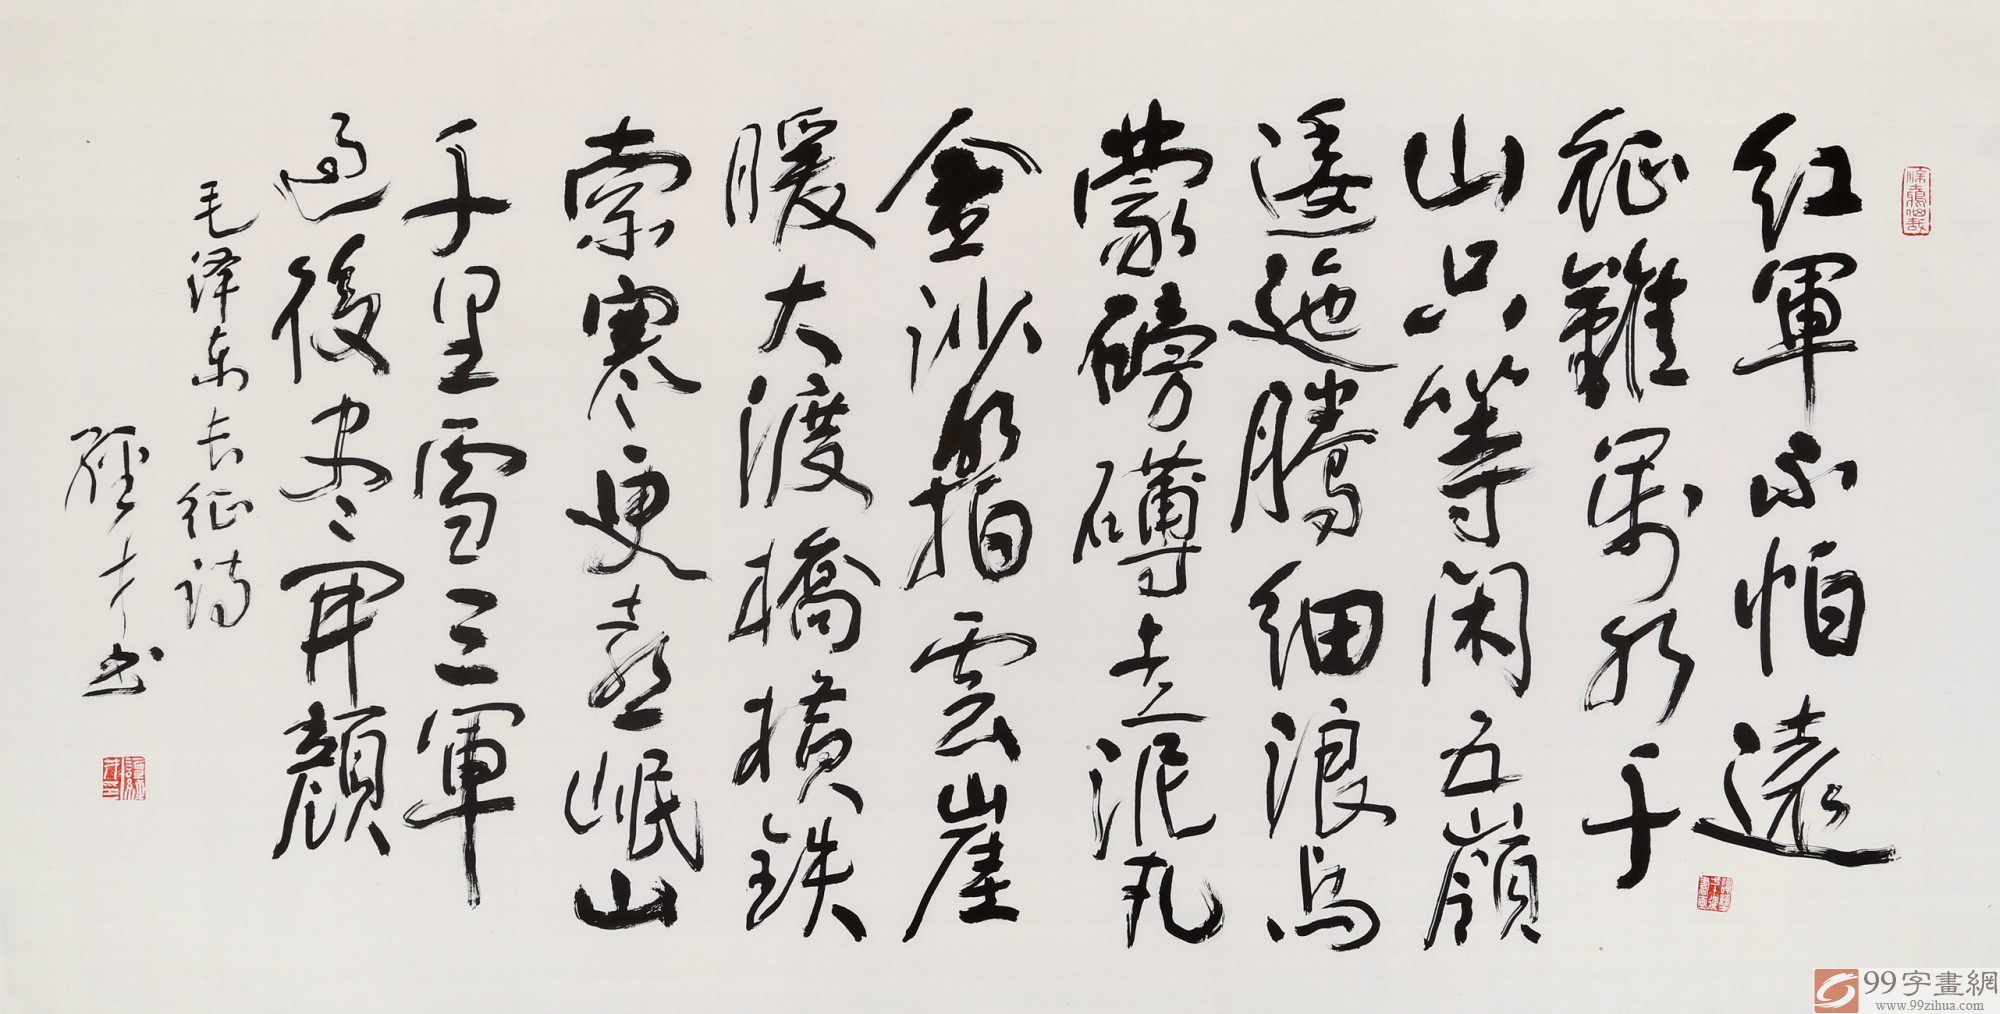 红軍不怕遠
征難萬水千
山只等闲五嶺
逶迤腾细浪乌
蒙磅礴走泥丸
金沙水拍雲崖
暖大渡橋横铁
索寒更喜岷山
千里雪三軍
過後尽開顏
毛泽东长征诗
經才书
99字畫網
www.99zihua.com